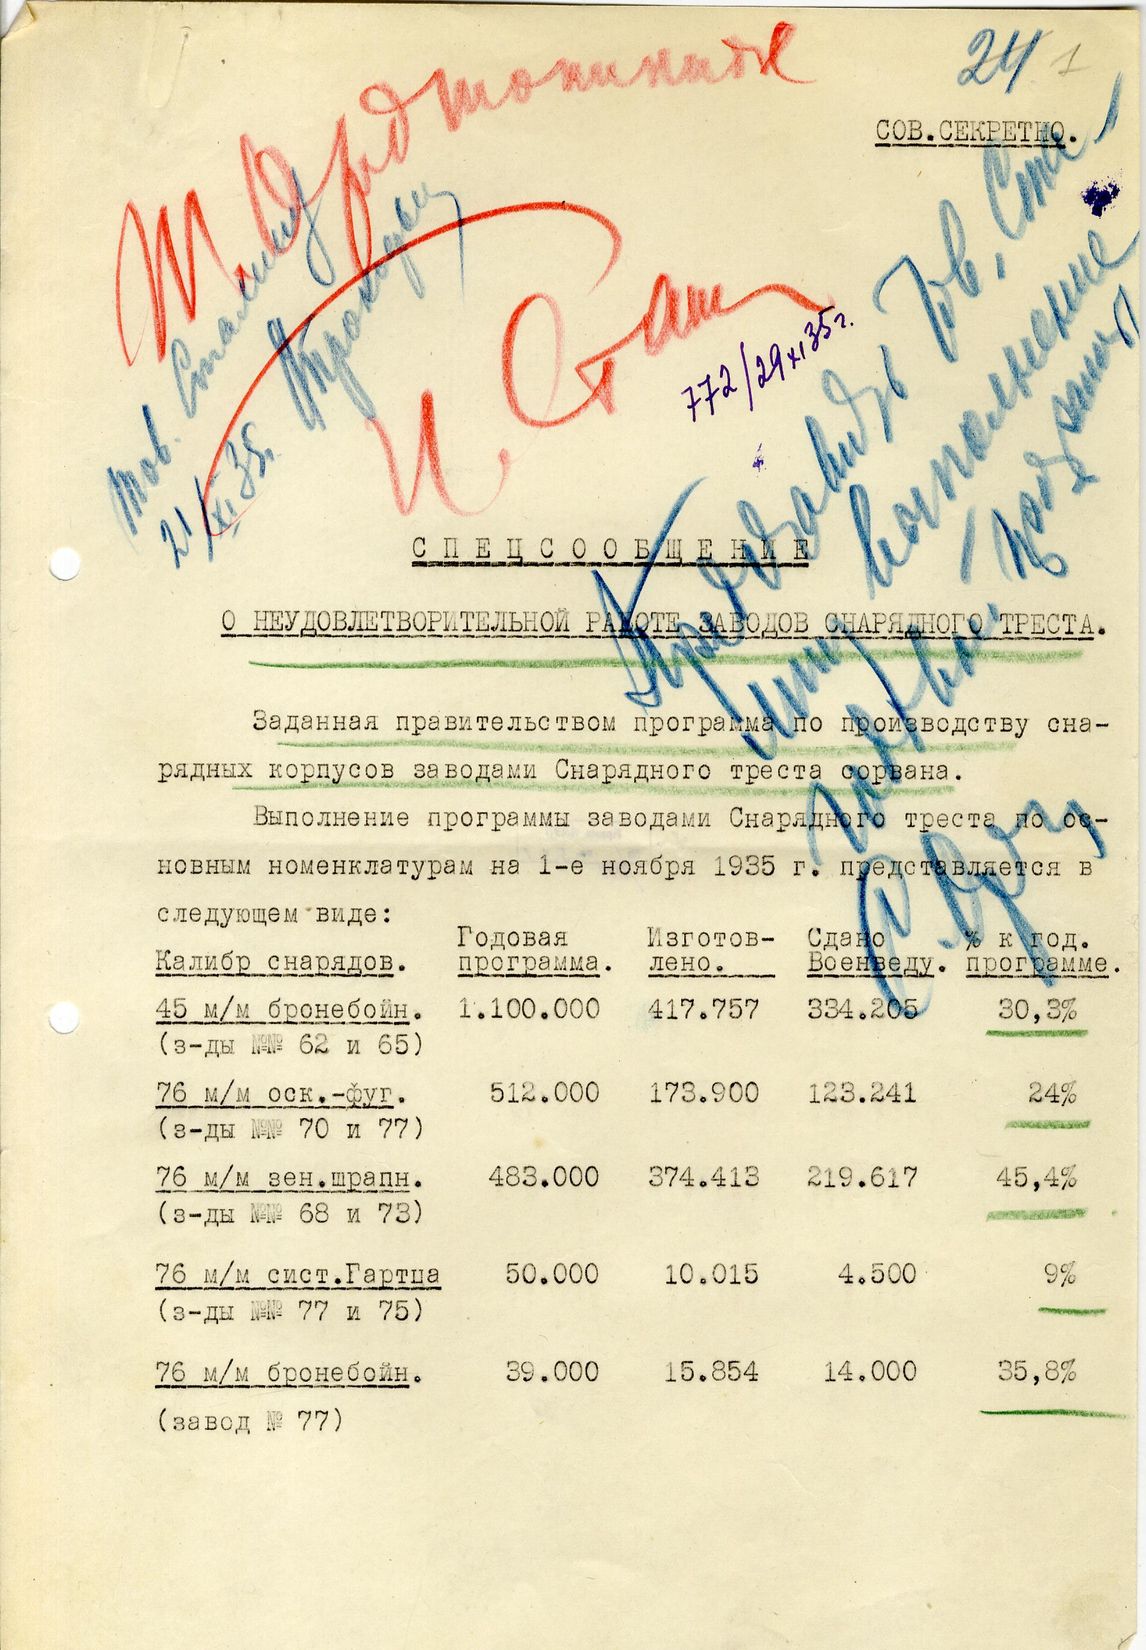 24 1
СОВ.СЕКРЕТНО.
Т. Орджоникидзе
И. Сталин
тов. Сталину
21/XI 35г.
772/29 XI 35г.
СПЕЦСООБЩЕНИЕ
О НЕУДОВЛЕТВОРИТЕЛЬНОЙ РАБОТЕ ЗАВОДОВ СНАРЯДНОГО ТРЕСТА.
Заданная правительством программа по производству сна-
рядных корпусов заводами Снарядного треста сорвана.
Выполнение программы заводами Снарядного треста по ос-
новным номенклатурам на 1-е ноября 1935 г. представляется в
следующем виде:
Годовая Изготов- Сдано % к год.
Калибр снарядов. программа. лено. Военведу. программе.
45 м/м бронебойн. 1.100.000 417.757 334.205 30,3%
(з-ды №№ 62 и 65)
76 м/м оск.-фуг. 512.000 173.900 123.241 24%
(з-ды №№ 70 и 77)
76 м/м зен.шрапн. 483.000 374.413 219.617 45,4%
(з-ды №№ 68 и 73)
76 м/м сист.Гартца 50.000 10.015 4.500 9%
(з-ды №№ 77 и 75)
76 м/м бронебойн. 39.000 15.854 14.000 35,8%
(завод № 77)